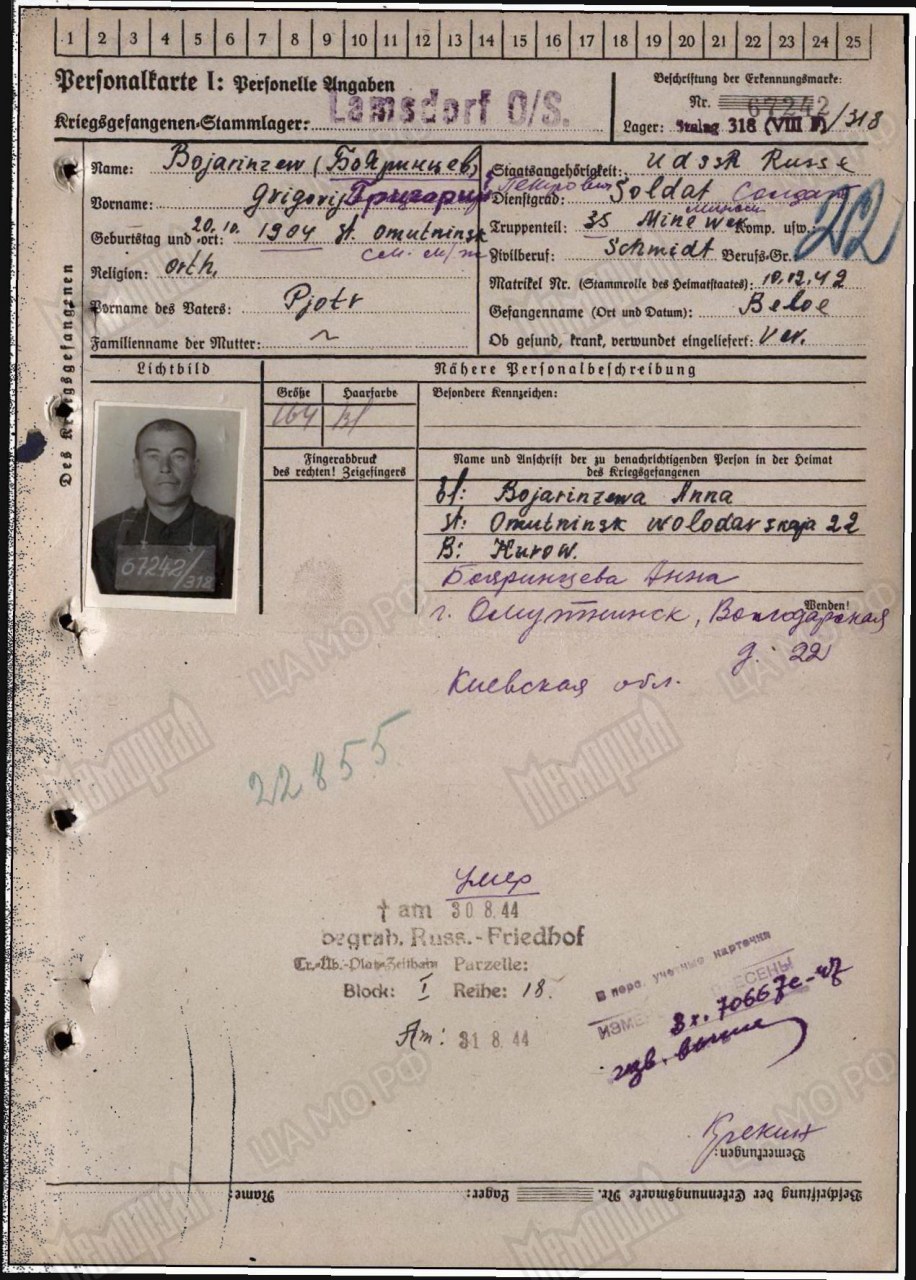 1 2 3 4 5 6 7 8 9 10 11 12 13 14 15 16 17 18 19 20 21 22 23 24 25
Personalkarte I: Personelle Angaben
Kriegsgefangenen-Stammlager: Lamsdorf O/S.
Beschriftung der Erkennungsmarke:
Nr. 67242/318
Lager: Stalag 318 (VIII F)
Des Kriegsgefangenen
Name: Bojarinzew (Бояринцев)
Vorname: Grigorij Григорий
Geburtstag und -ort: 20.10. 1904 st. Omutninsk
Religion: orth.
Vorname des Vaters: Pjotr
Familienname der Mutter: ~
Staatsangehörigkeit: UdSSR Russe
Петрович
Dienstgrad: Soldat Солдат
Truppenteil: 35 Minewer Komp. usw.:
Zivilberuf: Schmidt Berufs-Gr.
22
Matrikel Nr. (Stammrolle des Heimatstaates): 10.12.42
Gefangenname (Ort und Datum): Beloe
Ob gesund, krank, verwundet eingeliefert: Ver.
Lichtbild
Nähere Personalbeschreibung
Größe Haarfarbe Besondere Kennzeichen:
164 Bl
Fingerabdruck
des rechten! Zeigefingers
Name und Anschrift der zu benachrichtigenden Person in der Heimat
des Kriegsgefangenen
67242/318
Bojarinzewa Anna
st: Omutninsk Wolodarskaja 22
B: Kirow.
Бояринцева Анна
Wenden!
г. Омутнинск, Володарская
д. 22
Киевская обл.
22855
умер
† am 30 8. 44
begrab. Russ.-Friedhof
Tr.-Üb.-Platz Zeithain Parzelle:
Block: I Reihe: 18.
Am: 31 8. 44
В перс. учетные карточки
Вх. 70667с-47
Bemerkungen:
Beschriftung der Erkennungsmarke Nr. Lager: Name: